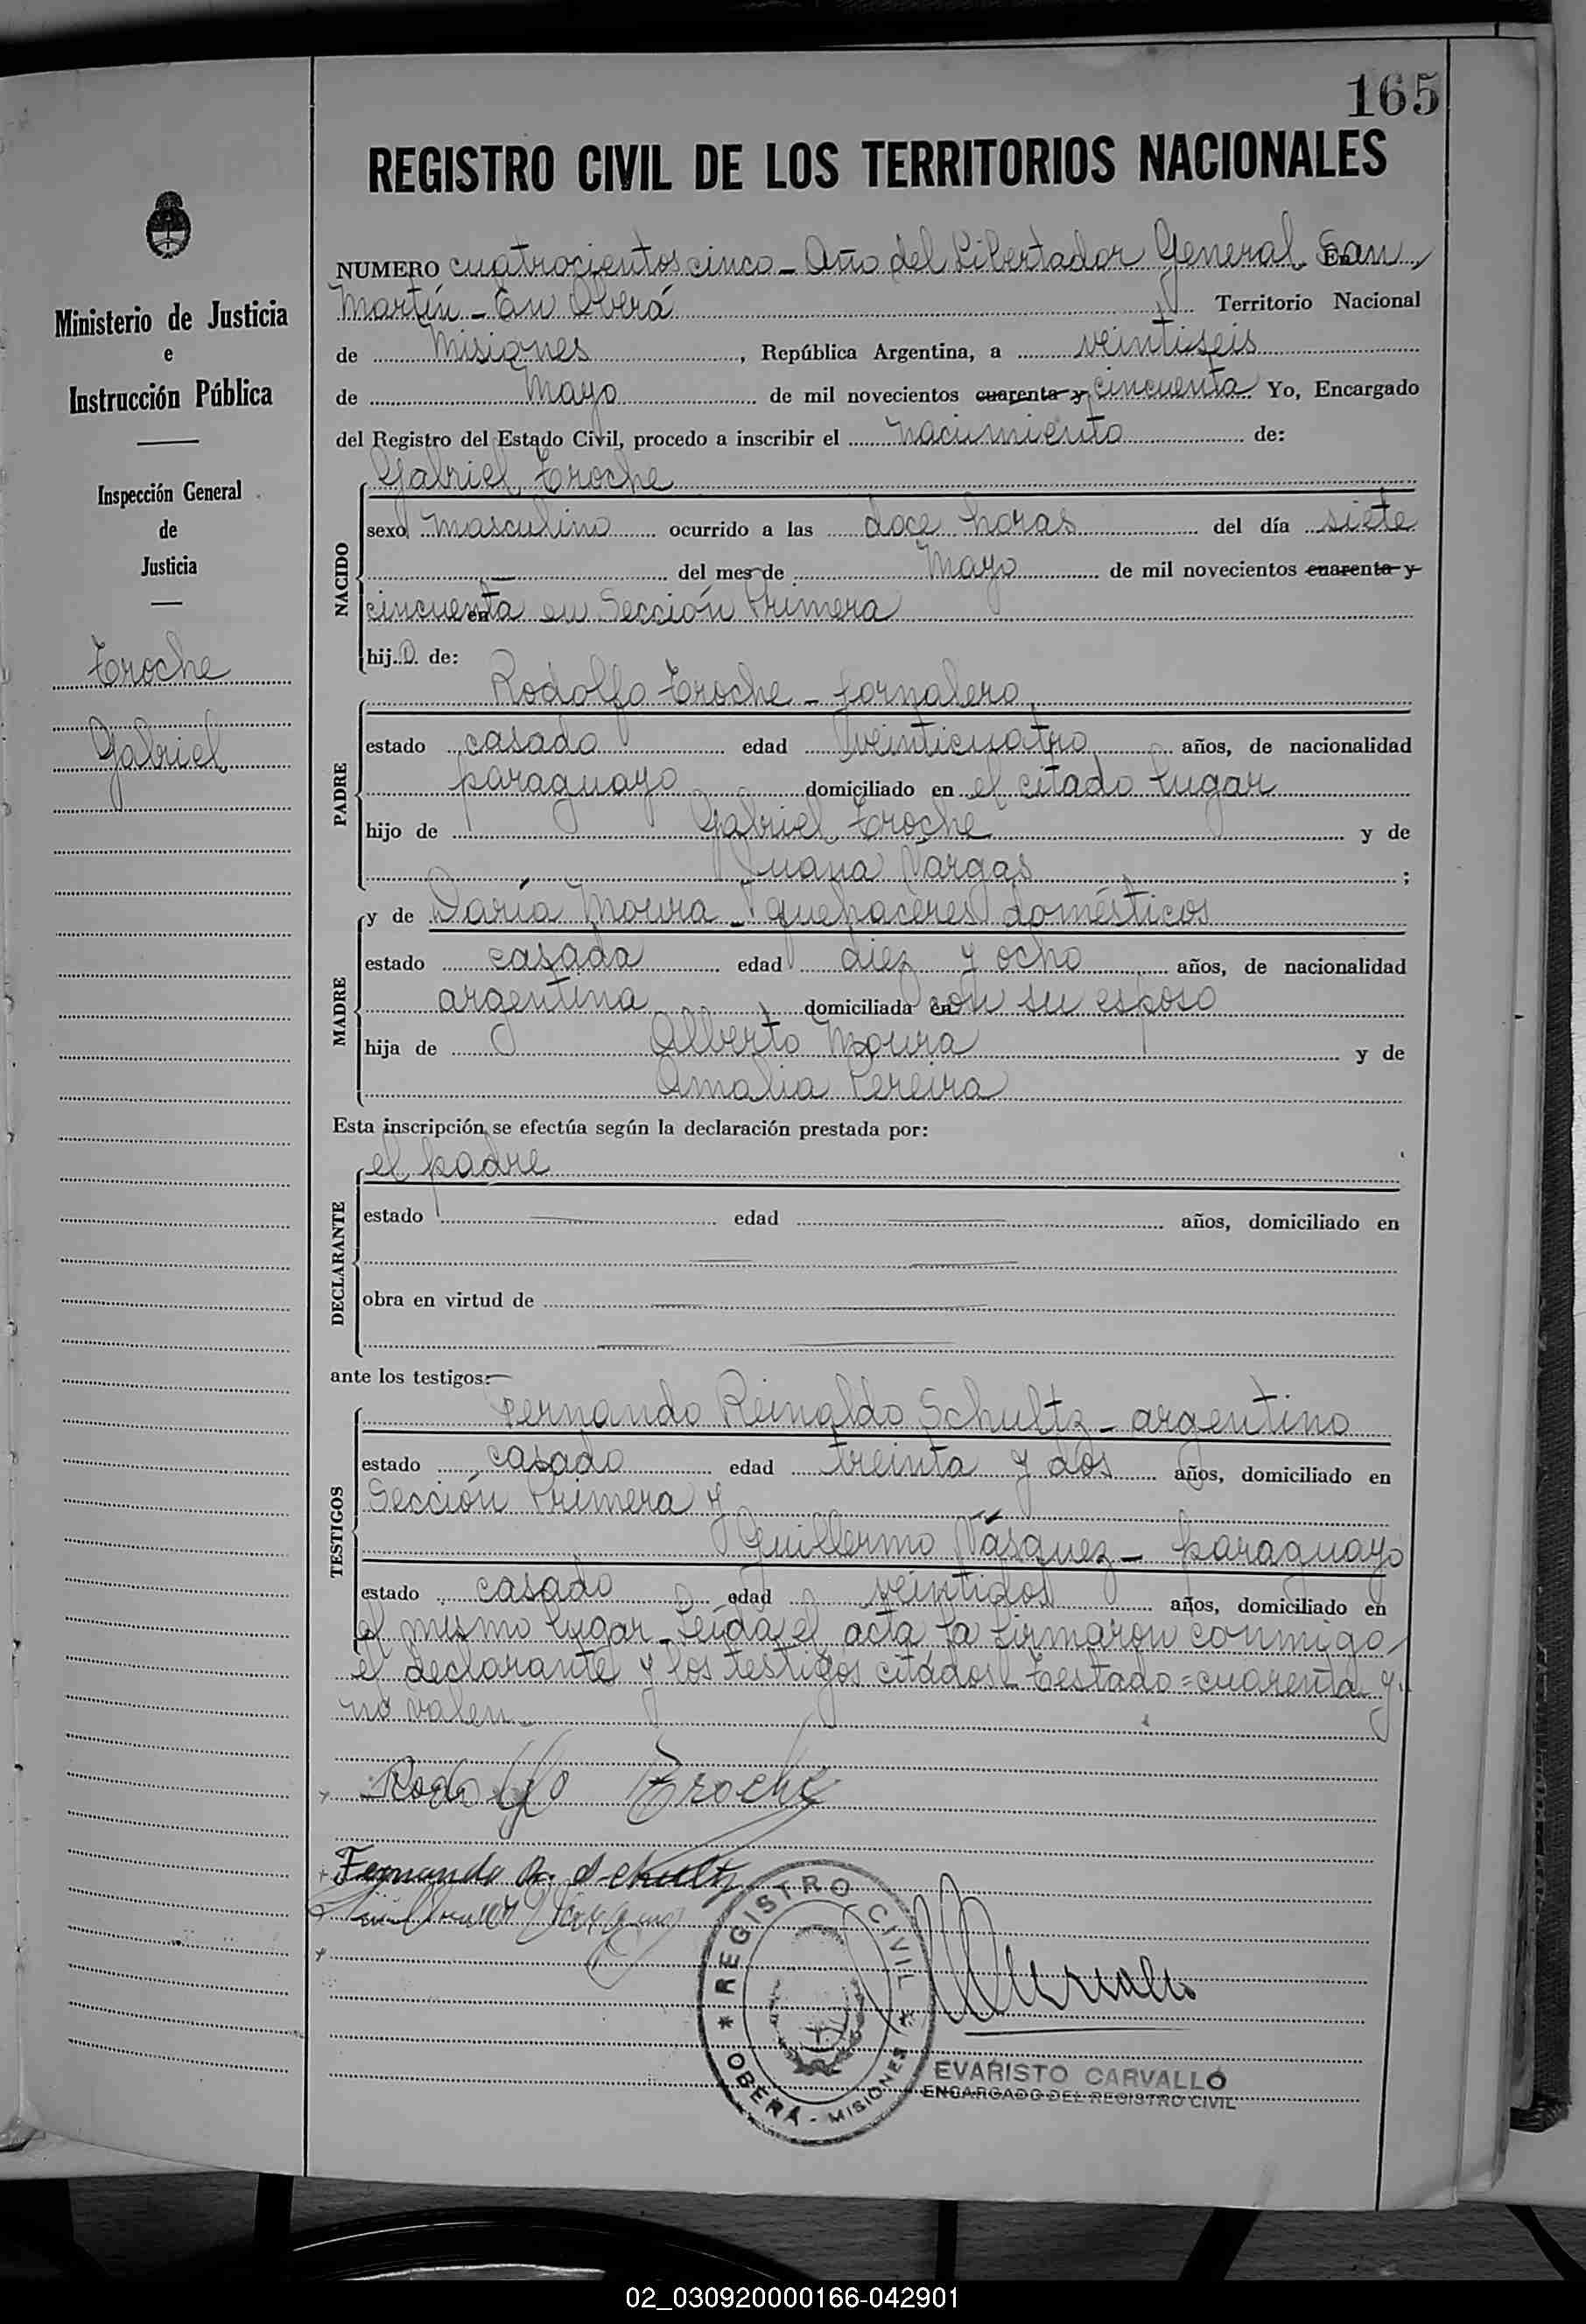 165
REGISTRO CIVIL DE LOS TERRITORIOS NACIONALES
Ministerio de Justicia
e
Instrucción Pública
Inspección General
de
Justicia
Troche
Gabriel
NUMERO cuatrocientos cinco - Año del Libertador General San
Martín - En Oberá Territorio Nacional
de Misiones, República Argentina, a veintiseis
de Mayo de mil novecientos cuarenta y cincuenta Yo, Encargado
del Registro del Estado Civil, procedo a inscribir el nacimiento de:
NACIDO
Gabriel Troche
sexo masculino ocurrido a las doce horas del día siete
— del mes de Mayo de mil novecientos cuarenta y
cincuenta en Sección Primera
hijo de:
PADRE
Rodolfo Troche - Jornalero
estado casado edad veinticuatro años, de nacionalidad
paraguayo domiciliado en el citado lugar
hijo de Gabriel Troche y de
Juana Vargas ;
MADRE
y de Daría Moura - quehaceres domésticos
estado casada edad diez y ocho años, de nacionalidad
argentina domiciliada en con su esposo
hija de Alberto Moura y de
Amalia Pereira
Esta inscripción se efectúa según la declaración prestada por:
DECLARANTE
el padre
estado — edad — años, domiciliado en
obra en virtud de —
ante los testigos:
TESTIGOS
Fernando Reinaldo Schultz - argentino
estado casado edad treinta y dos años, domiciliado en
Sección Primera y
Guillermo Vásquez - paraguayo
estado casado edad veintidos años, domiciliado en
el mismo lugar - Leída el acta la firmaron conmigo
el declarante y los testigos citados - Testado = cuarenta y
no valen -
Rodolfo Troche
Fernando R. Schultz
REGISTRO CIVIL
OBERÁ - MISIONES
EVARISTO CARVALLO
ENCARGADO DEL REGISTRO CIVIL
02_030920000166-042901